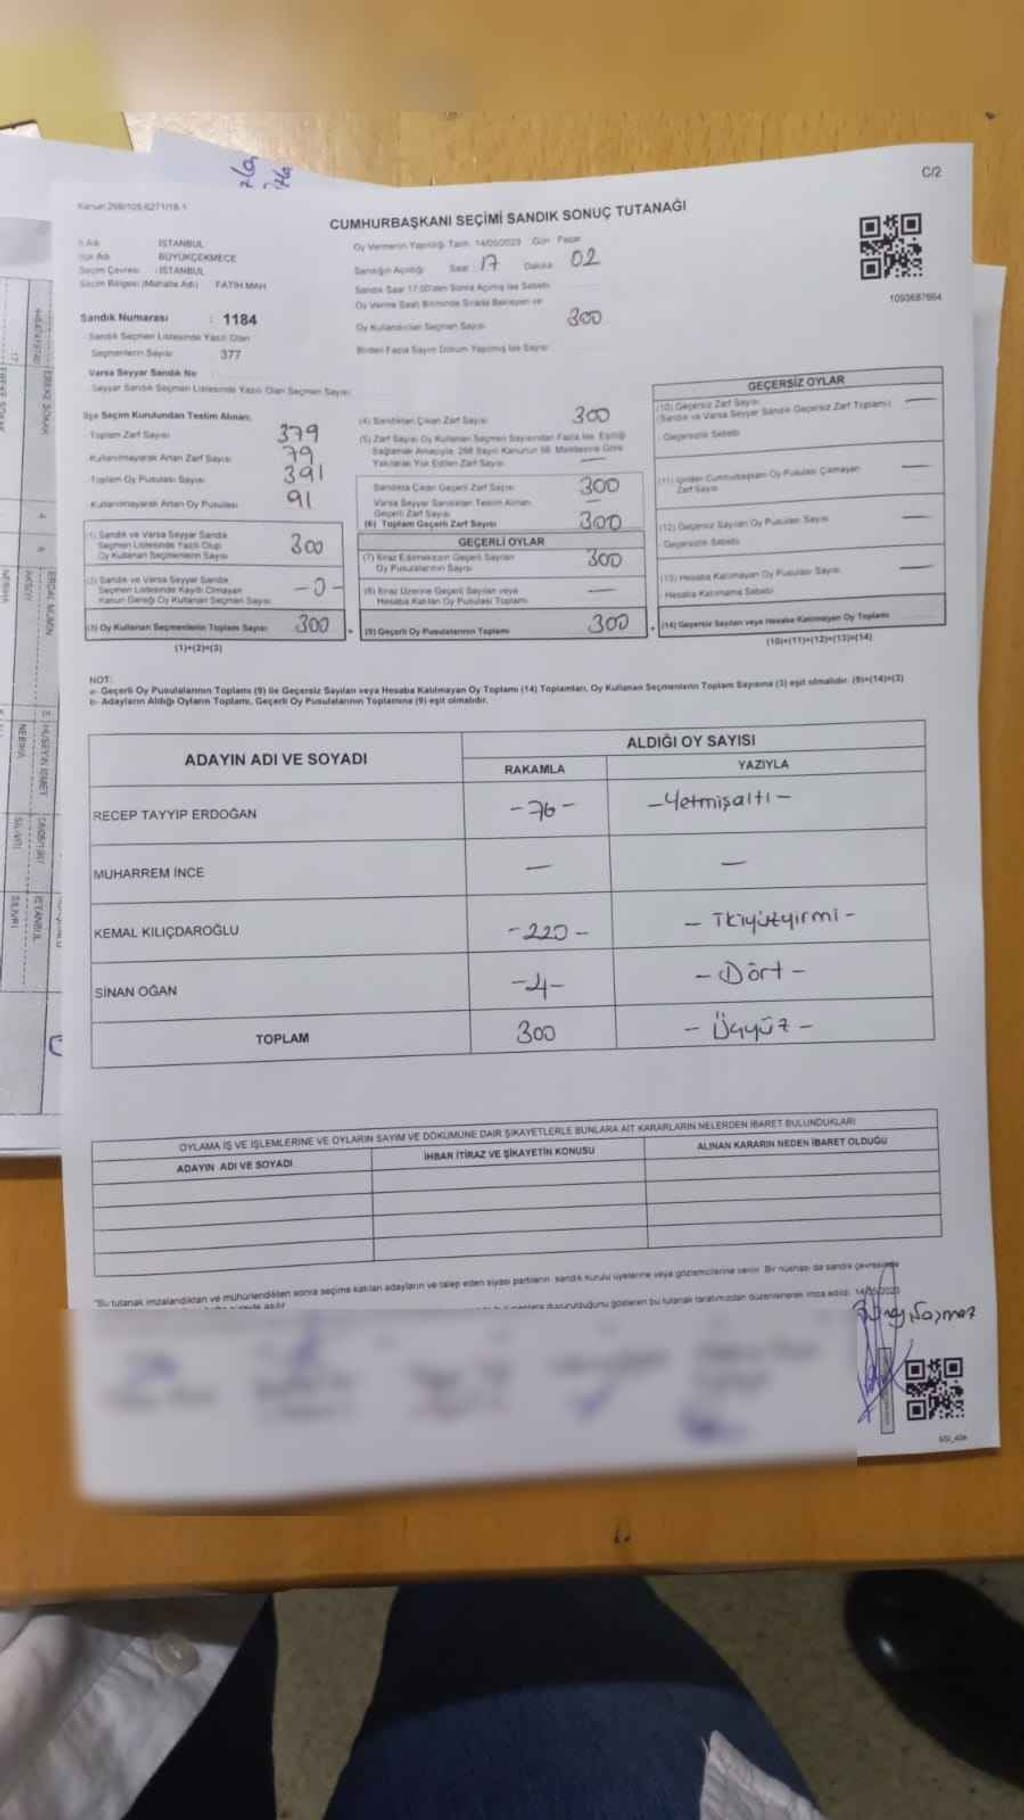 C/2
Kanun:298/105,6271/18.1
CUMHURBAŞKANI SEÇİMİ SANDIK SONUÇ TUTANAĞI
İl Adı : İSTANBUL
İlçe Adı : BÜYÜKÇEKMECE
Seçim Çevresi : İSTANBUL
Seçim Bölgesi (Mahalle Adı) : FATİH MAH
Sandık Numarası : 1184
Sandık Seçmen Listesinde Yazılı Olan
Seçmenlerin Sayısı : 377
Varsa Seyyar Sandık No
Seyyar Sandık Seçmen Listesinde Yazılı Olan Seçmen Sayısı
Oy Vermenin Yapıldığı Tarih: 14/05/2023 Gün: Pazar
Sandığın Açıldığı Saat: 17 Dakika: 02
Sandık Saat 17.00'den Sonra Açılmış İse Sebebi
Oy Verme Saati Bitiminde Sırada Bekleyen ve
Oy Kullandırılan Seçmen Sayısı 300
Birden Fazla Sayım Döküm Yapılmış İse Sayısı
1093687664
İlçe Seçim Kurulundan Teslim Alınan:
Toplam Zarf Sayısı 379
Kullanılmayarak Artan Zarf Sayısı 79
Toplam Oy Pusulası Sayısı 391
Kullanılmayarak Artan Oy Pusulası 91
(1) Sandık ve Varsa Seyyar Sandık
Seçmen Listesinde Yazılı Olup
Oy Kullanan Seçmenlerin Sayısı 300
(2) Sandık ve Varsa Seyyar Sandık
Seçmen Listesinde Kayıtlı Olmayan
Kanun Gereği Oy Kullanan Seçmen Sayısı -0-
(3) Oy Kullanan Seçmenlerin Toplam Sayısı 300
(1)+(2)=(3)
(4) Sandıktan Çıkan Zarf Sayısı 300
(5) Zarf Sayısı Oy Kullanan Seçmen Sayısından Fazla İse, Eşitliği
Sağlamak Amacıyla, 298 Sayılı Kanunun 98. Maddesine Göre
Yakılarak Yok Edilen Zarf Sayısı —
Sandıkta Çıkan Geçerli Zarf Sayısı 300
Varsa Seyyar Sandıktan Teslim Alınan
Geçerli Zarf Sayısı —
(6) Toplam Geçerli Zarf Sayısı 300
GEÇERLİ OYLAR
(7) İtiraz Edilmeksizin Geçerli Sayılan
Oy Pusulalarının Sayısı 300
(8) İtiraz Üzerine Geçerli Sayılan veya
Hesaba Katılan Oy Pusulası Toplamı —
(9) Geçerli Oy Pusulalarının Toplamı 300
GEÇERSİZ OYLAR
(10) Geçersiz Zarf Sayısı —
(Sandık ve Varsa Seyyar Sandık Geçersiz Zarf Toplamı)
Geçersizlik Sebebi
(11) İçinden Cumhurbaşkanı Oy Pusulası Çıkmayan —
Zarf Sayısı
(12) Geçersiz Sayılan Oy Pusulası Sayısı —
Geçersizlik Sebebi
(13) Hesaba Katılmayan Oy Pusulası Sayısı —
Hesaba Katılmama Sebebi
(14) Geçersiz Sayılan veya Hesaba Katılmayan Oy Toplamı
(10)+(11)+(12)+(13)=(14)
NOT:
a- Geçerli Oy Pusulalarının Toplamı (9) ile Geçersiz Sayılan veya Hesaba Katılmayan Oy Toplamı (14) Toplamları, Oy Kullanan Seçmenlerin Toplam Sayısına (3) eşit olmalıdır. (9)+(14)=(3)
b- Adayların Aldığı Oyların Toplamı, Geçerli Oy Pusulalarının Toplamına (9) eşit olmalıdır.
ADAYIN ADI VE SOYADI ALDIĞI OY SAYISI
RAKAMLA YAZIYLA
RECEP TAYYIP ERDOĞAN -76- -Yetmişaltı-
MUHARREM İNCE — —
KEMAL KILIÇDAROĞLU -220- - İkiyüzyirmi -
SİNAN OĞAN -4- - Dört -
TOPLAM 300 - Üçyüz -
OYLAMA İŞ VE İŞLEMLERİNE VE OYLARIN SAYIM VE DÖKÜMÜNE DAİR ŞİKAYETLERLE BUNLARA AİT KARARLARIN NELERDEN İBARET BULUNDUKLARI
ADAYIN ADI VE SOYADI İHBAR İTİRAZ VE ŞİKAYETİN KONUSU ALINAN KARARIN NEDEN İBARET OLDUĞU
"Bu tutanak imzalandıktan ve mühürlendikten sonra seçime katılan adayların ve talep eden siyasi partilerin sandık kurulu üyelerine veya gözlemcilerine verilir. Bir nüshası da sandık çevresinde
bulunduğunu gösteren bu tutanak tarafımızdan düzenlenerek imza edildi. 14/05/2023